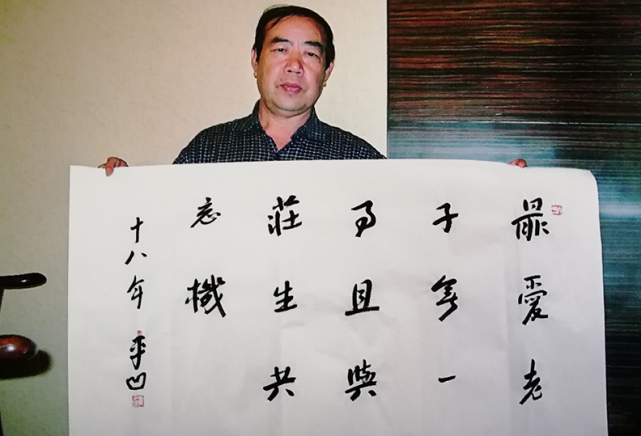 最愛老
子無一
事且與
莊生共
忘機
十八年 平凹